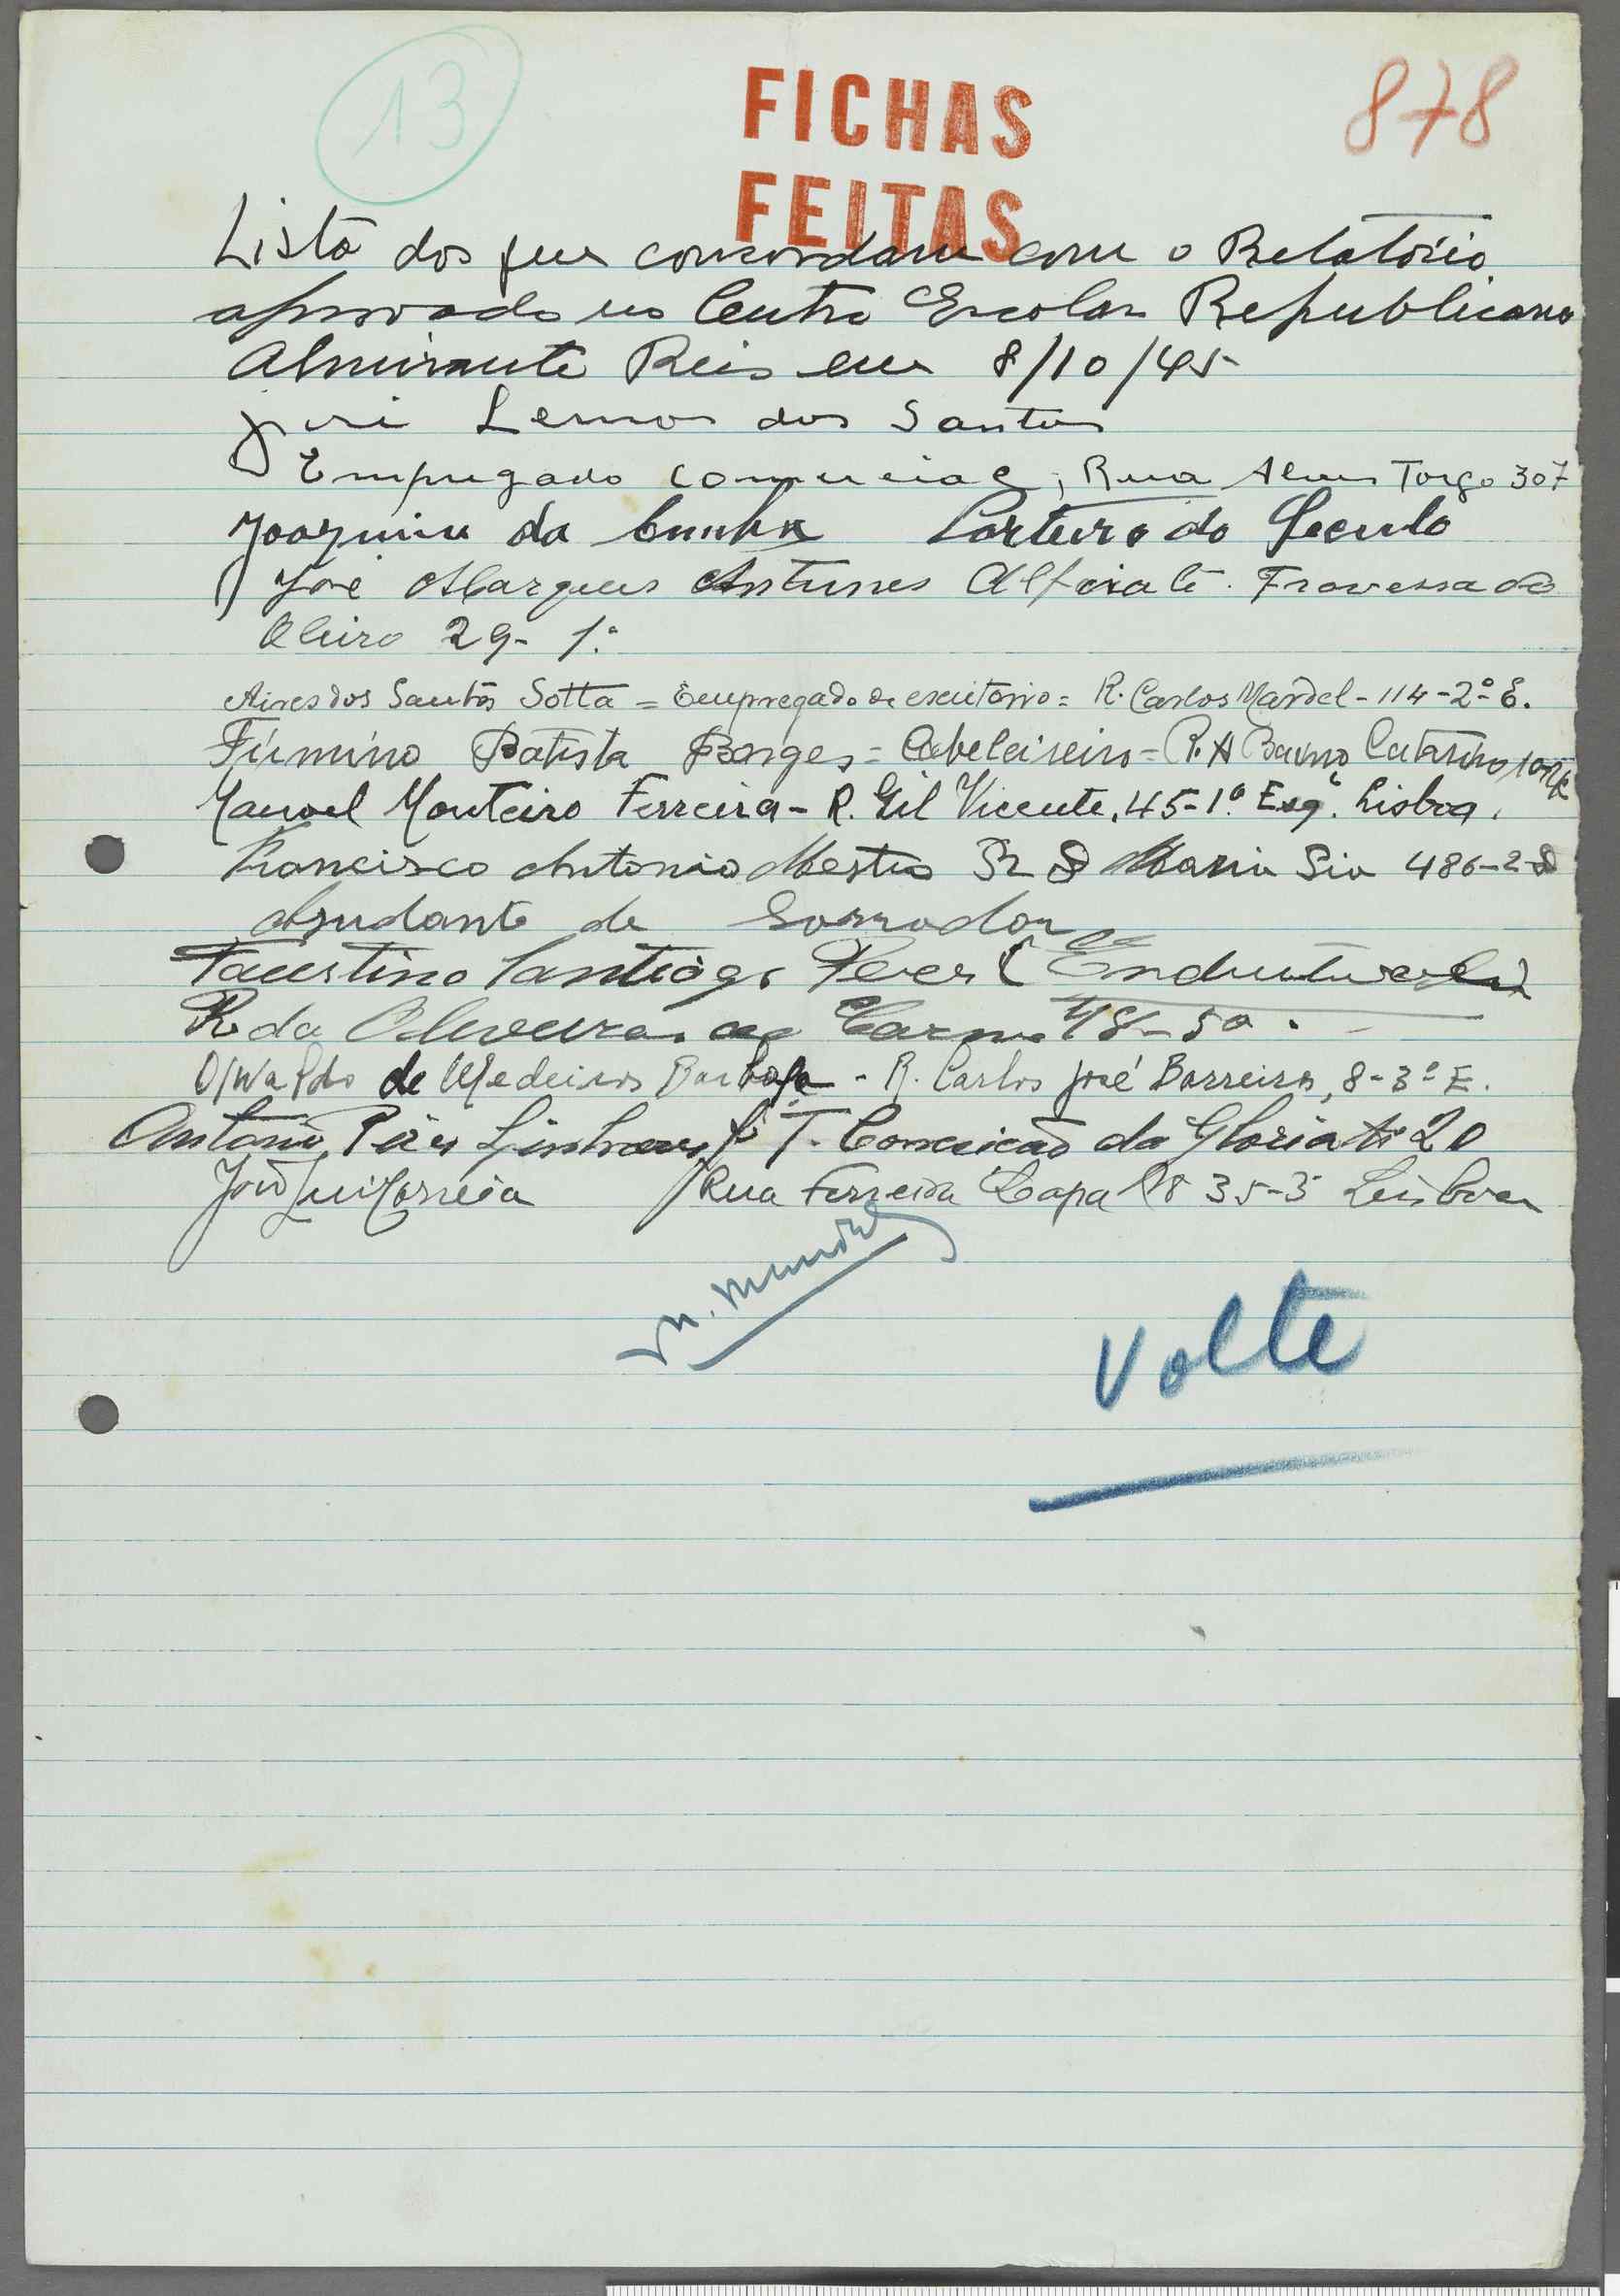 13
878
FICHAS
FEITAS
Lista dos que concordam com o Relatório
aprovado no Centro Escolar Republicano
Almirante Reis em 8/10/45
José Lemos dos Santos
Empregado comercial, Rua Alves Torgo 307
Joaquim da Cunha Porteiro do Seculo
José Marques Antunes Alfaiate. Travessa do
Oleiro 29-1.º
Aires dos Santos Sotta = Empregado de escritório = R. Carlos Mardel - 114 - 2º E.
Firmino Batista Borges = Cabeleireiro = R. A Catarino 10
Manoel Monteiro Ferreira - R. Gil Vicente, 45-1º Esqº. Lisboa.
Francisco Antonio Mestre R D Maria Pia 486-2-D
Ajudante de
Faustino Santiago (Endustrial)
R da Oliveira ao Carmo 48-50.
Oswaldo de Medeiros Barbosa - R. Carlos José Barreiros, 8-3º E.
Antonio Pires T. Conceicão da Gloria 20
João Luiz Correia Rua Ferreira Lapa 35-3 Lisboa
Volte